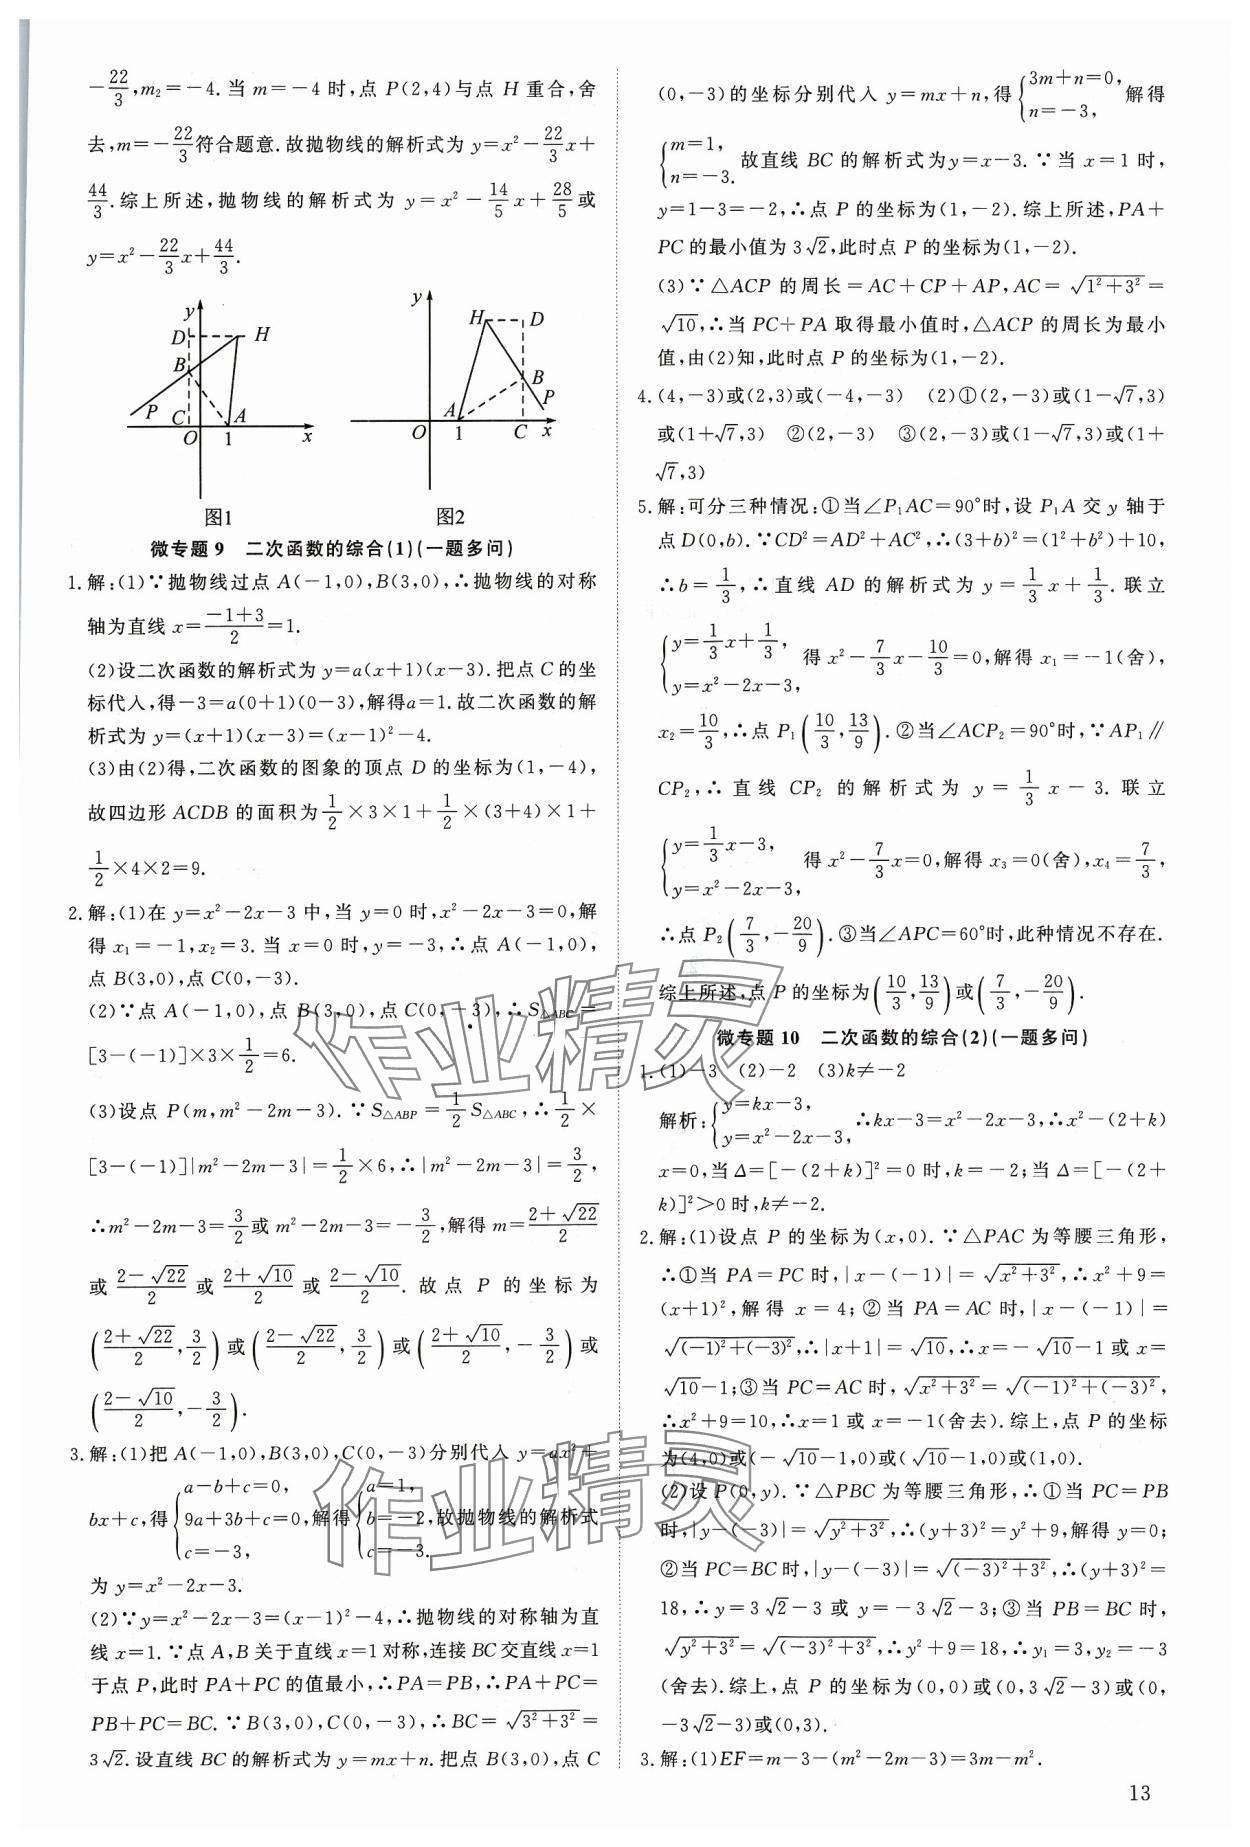 -22/3,m₂=-4.当 m=-4 时,点 P(2,4)与点 H 重合,舍
去,m=-22/3符合题意.故抛物线的解析式为 y=x²-22/3x+
44/3.综上所述,抛物线的解析式为 y=x²-14/5x+28/5或
y=x²-22/3x+44/3.
y D H B P C O 1 A x
图1
y H D B P A O 1 C x
图2
微专题 9 二次函数的综合(1)(一题多问)
1.解:(1)∵抛物线过点 A(-1,0),B(3,0),∴抛物线的对称
轴为直线 x=(-1+3)/2=1.
(2)设二次函数的解析式为 y=a(x+1)(x-3).把点 C 的坐
标代入,得-3=a(0+1)(0-3),解得a=1.故二次函数的解
析式为 y=(x+1)(x-3)=(x-1)²-4.
(3)由(2)得,二次函数的图象的顶点 D 的坐标为(1,-4),
故四边形 ACDB 的面积为1/2×3×1+1/2×(3+4)×1+
1/2×4×2=9.
2.解:(1)在 y=x²-2x-3 中,当 y=0 时,x²-2x-3=0,解
得 x₁=-1,x₂=3.当 x=0 时,y=-3,∴点 A(-1,0),
点 B(3,0),点 C(0,-3).
(2)∵点 A(-1,0),点 B(3,0),点 C(0,-3),∴S△ABC=
[3-(-1)]×3×1/2=6.
(3)设点 P(m,m²-2m-3).∵S△ABP=1/2S△ABC,∴1/2×
[3-(-1)]|m²-2m-3|=1/2×6,∴|m²-2m-3|=3/2,
∴m²-2m-3=3/2或 m²-2m-3=-3/2,解得 m=(2+√22)/2
或(2-√22)/2或(2+√10)/2或(2-√10)/2.故点 P 的坐标为
((2+√22)/2,3/2)或((2-√22)/2,3/2)或((2+√10)/2,-3/2)或
((2-√10)/2,-3/2).
3.解:(1)把 A(-1,0),B(3,0),C(0,-3)分别代入 y=ax²+
bx+c,得{a-b+c=0, 9a+3b+c=0, c=-3, 解得{a=1, b=-2, c=-3. 故抛物线的解析式
为 y=x²-2x-3.
(2)∵y=x²-2x-3=(x-1)²-4,∴抛物线的对称轴为直
线 x=1.∵点 A,B 关于直线 x=1 对称,连接 BC 交直线 x=1
于点 P,此时 PA+PC 的值最小,∴PA=PB,∴PA+PC=
PB+PC=BC.∵B(3,0),C(0,-3),∴BC=√(3²+3²)=
3√2.设直线 BC 的解析式为 y=mx+n.把点 B(3,0),点 C
(0,-3)的坐标分别代入 y=mx+n,得{3m+n=0, n=-3, 解得
{m=1, n=-3. 故直线 BC 的解析式为y=x-3.∵当 x=1 时,
y=1-3=-2,∴点 P 的坐标为(1,-2).综上所述,PA+
PC 的最小值为 3√2,此时点 P 的坐标为(1,-2).
(3)∵△ACP 的周长=AC+CP+AP,AC=√(1²+3²)=
√10,∴当 PC+PA 取得最小值时,△ACP 的周长为最小
值,由(2)知,此时点 P 的坐标为(1,-2).
4.(4,-3)或(2,3)或(-4,-3) (2)①(2,-3)或(1-√7,3)
或(1+√7,3) ②(2,-3) ③(2,-3)或(1-√7,3)或(1+
√7,3)
5.解:可分三种情况:①当∠P₁AC=90°时,设 P₁A 交 y 轴于
点 D(0,b).∵CD²=AD²+AC²,∴(3+b)²=(1²+b²)+10,
∴b=1/3,∴直线 AD 的解析式为 y=1/3x+1/3.联立
{y=1/3x+1/3, y=x²-2x-3, 得 x²-7/3x-10/3=0,解得 x₁=-1(舍),
x₂=10/3,∴点 P₁(10/3,13/9).②当∠ACP₂=90°时,∵AP₁∥
CP₂,∴直线 CP₂ 的解析式为 y=1/3x-3.联立
{y=1/3x-3, y=x²-2x-3, 得 x²-7/3x=0,解得 x₃=0(舍),x₄=7/3,
∴点 P₂(7/3,-20/9).③当∠APC=60°时,此种情况不存在.
综上所述,点 P 的坐标为(10/3,13/9)或(7/3,-20/9).
微专题 10 二次函数的综合(2)(一题多问)
1.(1)-3 (2)-2 (3)k≠-2
解析:{y=kx-3, y=x²-2x-3, ∴kx-3=x²-2x-3,∴x²-(2+k)
x=0,当 Δ=[-(2+k)]²=0 时,k=-2;当 Δ=[-(2+
k)]²>0 时,k≠-2.
2.解:(1)设点 P 的坐标为(x,0).∵△PAC 为等腰三角形,
∴①当 PA=PC 时,|x-(-1)|=√(x²+3²),∴x²+9=
(x+1)²,解得 x=4;②当 PA=AC 时,|x-(-1)|=
√((-1)²+(-3)²),∴|x+1|=√10,∴x=-√10-1 或 x=
√10-1;③当 PC=AC 时,√(x²+3²)=√((-1)²+(-3)²),
∴x²+9=10,∴x=1 或 x=-1(舍去).综上,点 P 的坐标
为(4,0)或(-√10-1,0)或(√10-1,0)或(1,0).
(2)设 P(0,y).∵△PBC 为等腰三角形,∴①当 PC=PB
时,|y-(-3)|=√(y²+3²),∴(y+3)²=y²+9,解得 y=0;
②当 PC=BC 时,|y-(-3)|=√((-3)²+3²),∴(y+3)²=
18,∴y=3√2-3 或 y=-3√2-3;③当 PB=BC 时,
√(y²+3²)=√((-3)²+3²),∴y²+9=18,∴y₁=3,y₂=-3
(舍去).综上,点 P 的坐标为(0,0)或(0,3√2-3)或(0,
-3√2-3)或(0,3).
3.解:(1)EF=m-3-(m²-2m-3)=3m-m².
13
作业精灵
作业精灵